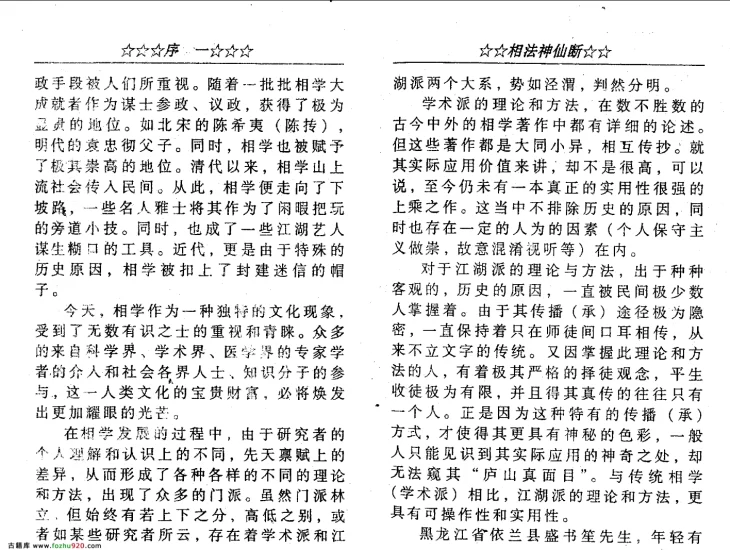 ☆☆☆序　一☆☆☆☆
政手段被人们所重视。随着一批批相学大
成就者作为谋士参政、议政，获得了极为
显赉的地位。如北宋的陈希夷（陈抟），
明代的袁忠彻父子。同时，相学也被赋予
了极其崇高的地位。清代以来，相学山上
流社会传入民间。从此，相学便走向了下
坡路，一些名人雅士将其作为了闲暇把玩
的旁道小技。同时，也成了一些江湖艺人
谋生糊口的工具。近代，更是由于特殊的
历史原因，相学被扣上了封建迷信的帽
子。
今天，相学作为一种独特的文化现象，
受到了无数有识之士的重视和青睐。众多
的来自科学界、学术界、医学界的专家学
者的介入和社会各界人士、知识分子的参
与，这一人类文化的宝贵财富，必将焕发
出更加耀眼的光芒。
在相学发展的过程中，由于研究者的
个人理解和认识上的不同，先天禀赋上的
差异，从而形成了各种各样的不同的理论
和方法，出现了众多的门派。虽然门派林
立，但始终有着上下之分，高低之别，或
者如某些研究者所云，存在着学术派和江
☆☆相法神仙断☆☆
湖派两个大系，势如泾渭，判然分明。
学术派的理论和方法，在数不胜数的
古今中外的相学著作中都有详细的论述。
但这些著作都是大同小异，相互传抄。就
其实际应用价值来讲，却不是很高，可以
说，至今仍未有一本真正的实用性很强的
上乘之作。这当中不排除历史的原因，同
时也存在一定的人为的因素（个人保守主
义做祟，故意混淆视听等）在内。
对于江湖派的理论与方法，出于种种
客观的，历史的原因，一直被民间极少数
人掌握着。由于其传播（承）途径极为隐
密，一直保持着只在师徒间口耳相传，从
来不立文字的传统。又因掌握此理论和方
法的人，有着极其严格的择徒观念，平生
收徒极为有限，并且得其真传的往往只有
一个人。正是因为这种特有的传播（承）
方式，才使得其更具有神秘的色彩，一般
人只能见识到其实际应用的神奇之处，却
无法窥其“庐山真面目”。与传统相学
（学术派）相比，江湖派的理论和方法，更
具有可操作性和实用性。
黑龙江省依兰县盛书笙先生，年轻有
古籍库 www.fozhu920.com